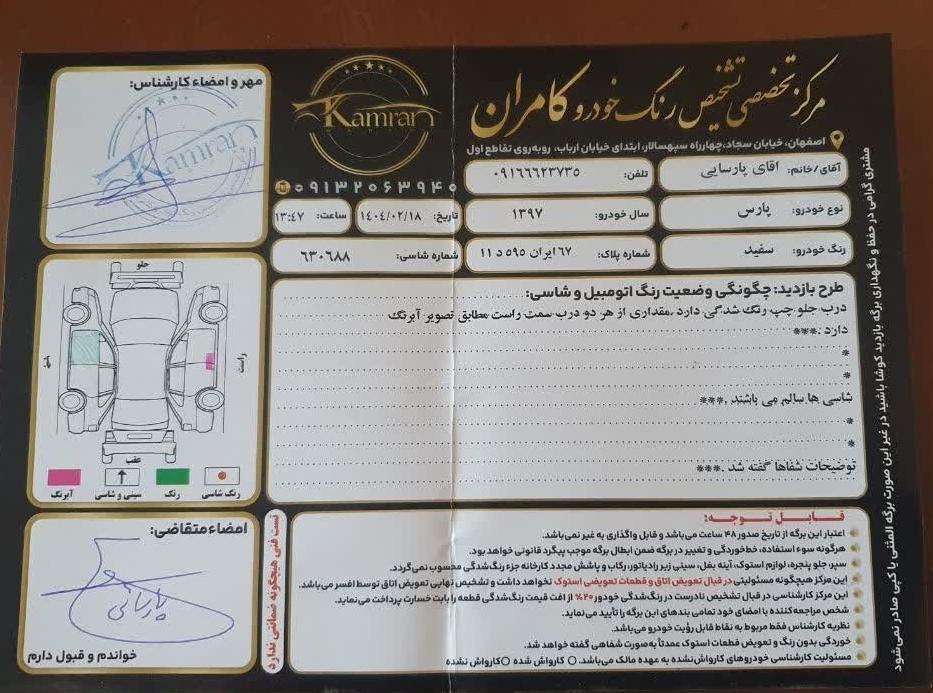 مرکز تخصصی تشخیص رنگ خودرو کامران
اصفهان، خیابان سجاد، چهارراه سپهسالار، ابتدای خیابان ارباب، روبه‌روی تقاطع اول
Kamran
۰۹۱۳۲۰۶۳۹۴۰
آقای/خانم: اقای پارسایی
تلفن: ۰۹۱۶۶۶۲۳۷۳۵
نوع خودرو: پارس
سال خودرو: ۱۳۹۷
تاریخ: ۱۴۰۴/۰۲/۱۸
ساعت: ۱۳:۴۷
رنگ خودرو: سفید
شماره پلاک: ۶۷ ایران ۵۹۵ د ۱۱
شماره شاسی: ۶۳۰۶۸۸
طرح بازدید: چگونگی وضعیت رنگ اتومبیل و شاسی:
درب جلو چپ رنگ شدگی دارد .مقداری از هر دو درب سمت راست مطابق تصویر آبرنگ
دارد .***
*
*
شاسی ها سالم می باشند .***
*
*
توضیحات شفاها گفته شد .***
قابل توجه:
اعتبار این برگه از تاریخ صدور ۴۸ ساعت می‌باشد و قابل واگذاری به غیر نمی‌باشد.
هرگونه سوء استفاده، خط‌خوردگی و تغییر در برگه ضمن ابطال برگه موجب پیگرد قانونی خواهد بود.
سپر، جلو پنجره، لوازم استوک، آینه بغل، سینی زیر رادیاتور، رکاب و پاشش مجدد کارخانه جزء رنگ‌شدگی محسوب نمی‌گردد.
این مرکز هیچگونه مسئولیتی در قبال تعویض اتاق و قطعات تعویضی استوک نخواهد داشت و تشخیص نهایی تعویض اتاق توسط افسر می‌باشد.
این مرکز کارشناسی در قبال تشخیص نادرست در رنگ‌شدگی خودرو ۲۰٪ از افت قیمت رنگ‌شدگی قطعه را بابت خسارت پرداخت می‌نماید.
شخص مراجعه‌کننده با امضای خود تمامی بندهای این برگه را تأیید می‌نماید.
نظریه کارشناس فقط مربوط به نقاط قابل رؤیت خودرو می‌باشد.
خوردگی بدون رنگ و تعویض قطعات استوک عمدتاً به‌صورت شفاهی گفته خواهد شد.
مسئولیت کارشناسی خودروهای کارواش‌نشده به عهده مالک می‌باشد. کارواش شده کارواش نشده
تست فنی هیچگونه ضمانتی ندارد
مشتری گرامی در حفظ و نگهداری برگه بازدید کوشا باشید در غیر این صورت برگه المثنی یا کپی صادر نمی‌شود
مهر و امضاء کارشناس:
Kamran
جلو
راست
عقب
رنگ شاسی
رنگ
سینی و شاسی
آبرنگ
امضاء متقاضی:
پارسائی
خواندم و قبول دارم